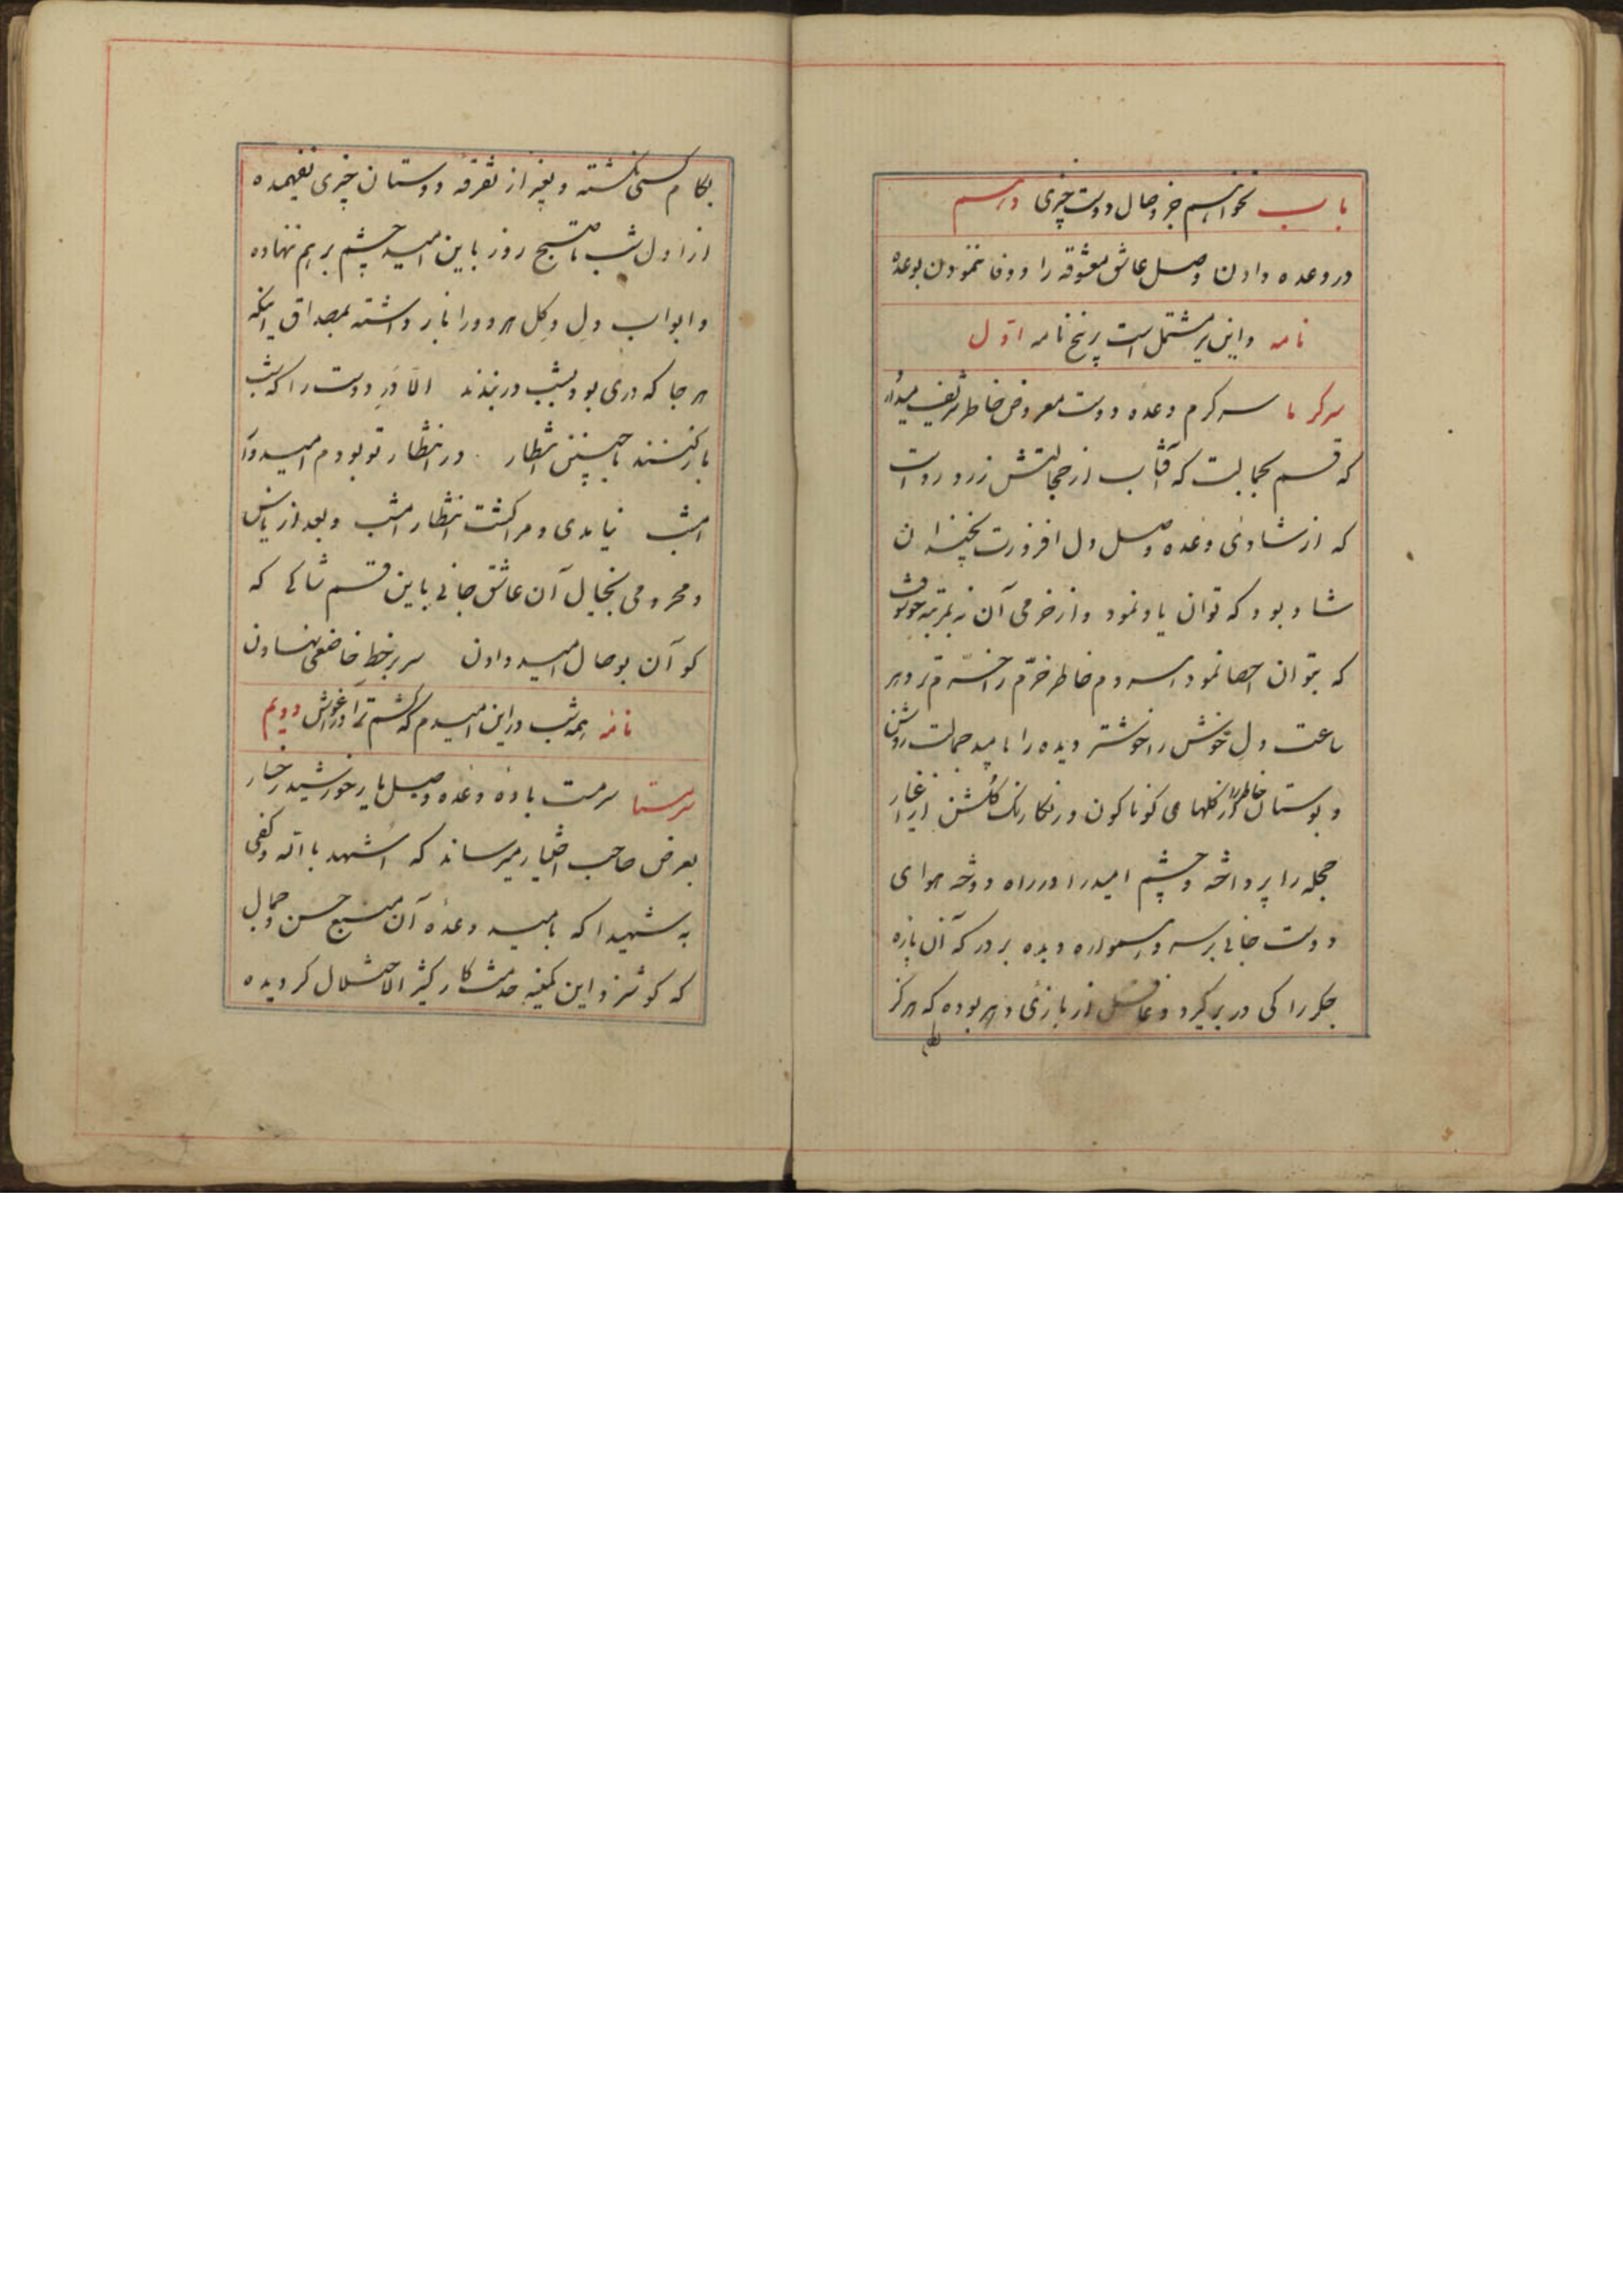 باب نخواهیم جز وصال دوست چیزی دهم
در وعده دادن وصل عاشق معشوقه را و وفا ننمودن بوعده
نامه و این نیز مشتمل است بر پنج نامه اول
سرکرما سرکرم وعدهٔ دوست معروض خاطر شریف میدارد
که قسم بجمالت که آفتاب از خجالتش زرد روست
که از شادی وعده وصل دل افروزت نچندان
شاد بود که توان یاد نمود و از خرمی آن نه بمرتبه
که بتوان احصا نمود خاطر خرم را خرم تر و هر
ساعت دل خوش را خوشتر دیده را بامید جمالت روشن
و بوستان خاطر را از گلهای کوناکون و رنکارنک گلشن از اغیار
حجله را پرداخته و چشم امید را در راه دوخته هوای
دوست جانی بر سر و دیده بر در که آن پاره
جکر را کی در بر کیرد و غافل از بازی دهر بوده که هرکز
بکام کسی نگشته و بغیر از تفرقه دوستان چیزی نفهمیده
از اول شب تا صبح روز باین امید چشم بر هم ننهاده
و ابواب دل و کل هر دو را باز داشته بمصداق اینکه
هر جا که دری بود بشب در بندند الا در دوست را که شب
باز کنند با چنین انتظار در انتظار تو بودم امیدوار
امشب نیامدی و مرا کشت انتظار امشب و بعد از یاس
و محرومی بخیال آن عاشق جانی باین قسم شاکی که
کو آن بوصال امید دادن سر بر خط خاضعی نهادن
نامه همه شب در این امیدم که کشم ترا در آغوش دویم
سرمستا سرمست باده وعده وصل یار خورشید رخسار
بعرض صاحب اختیار میرساند که اشهد بالله و کفی
به شهیدا که بامید وعدهٔ آن منبع حسن و جمال
که کوشزد این کمینه خدمتکار کثیر الاختلال کردیده